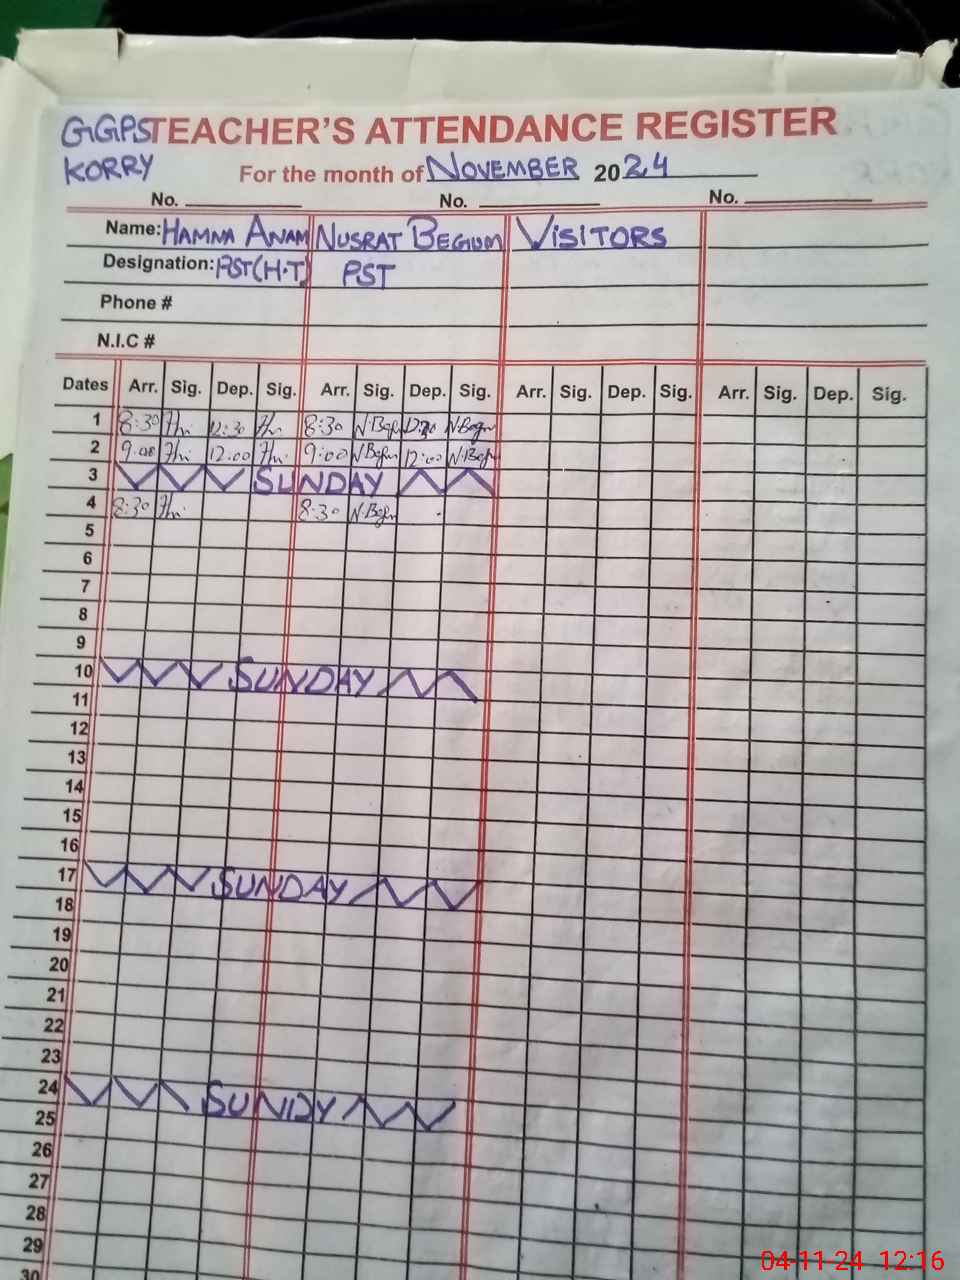 GGPS TEACHER'S ATTENDANCE REGISTER
KORRY For the month of NOVEMBER 2024
No. No. No.
Name: HAMNA ANAM NUSRAT BEGUM VISITORS
Designation: PST(H.T) PST
Phone #
N.I.C #
Dates Arr. Sig. Dep. Sig. Arr. Sig. Dep. Sig. Arr. Sig. Dep. Sig. Arr. Sig. Dep. Sig.
1 8:30 12:30 8:30 N.Begm 12:30 N.Begm
2 9.00 12.00 9:00 N.Begm 12:00 N.Begm
3 SUNDAY
4 8:30 8:30 N.Begm
5
6
7
8
9
10 SUNDAY
11
12
13
14
15
16
17 SUNDAY
18
19
20
21
22
23
24 SUNDY
25
26
27
28
29
30
04-11-24 12:16